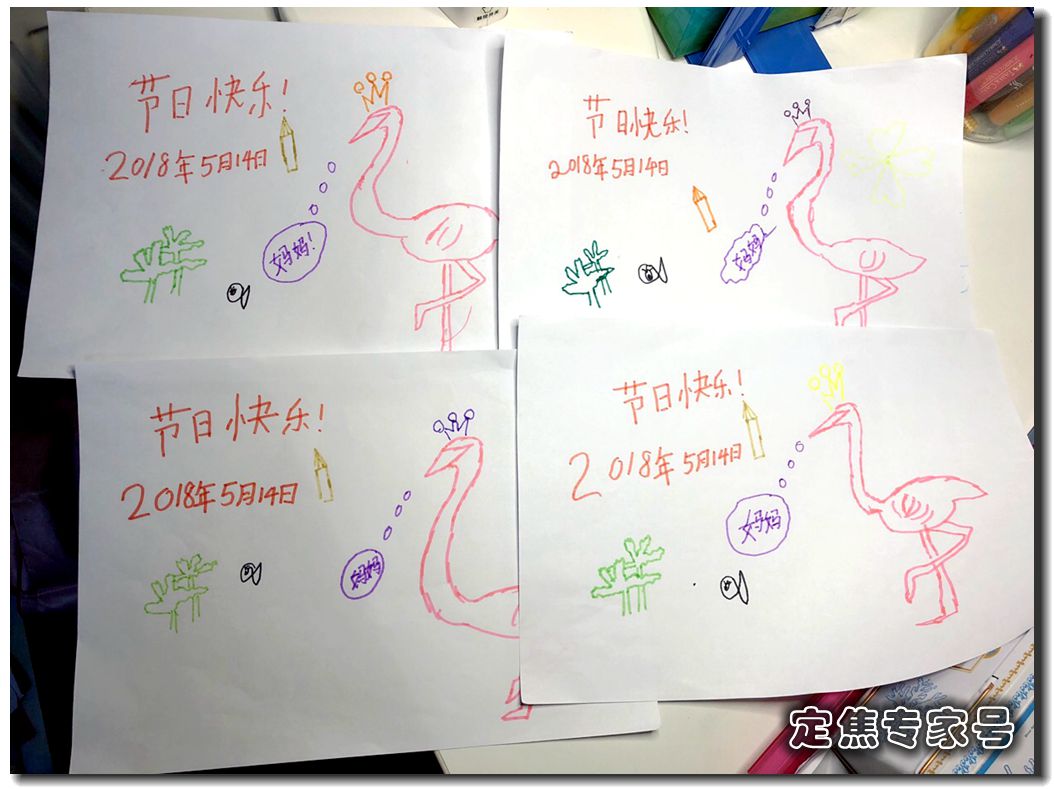 节日快乐!
2018年5月14日
妈妈!
节日快乐!
2018年5月14日
妈妈
节日快乐!
2018年5月14日
妈妈
节日快乐!
2018年5月14日
妈妈
定焦专家号